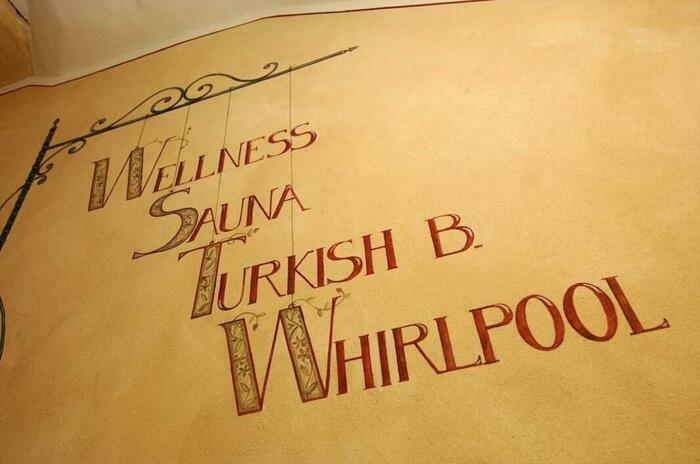 WELLNESS
SAUNA
TURKISH B.
WHIRLPOOL